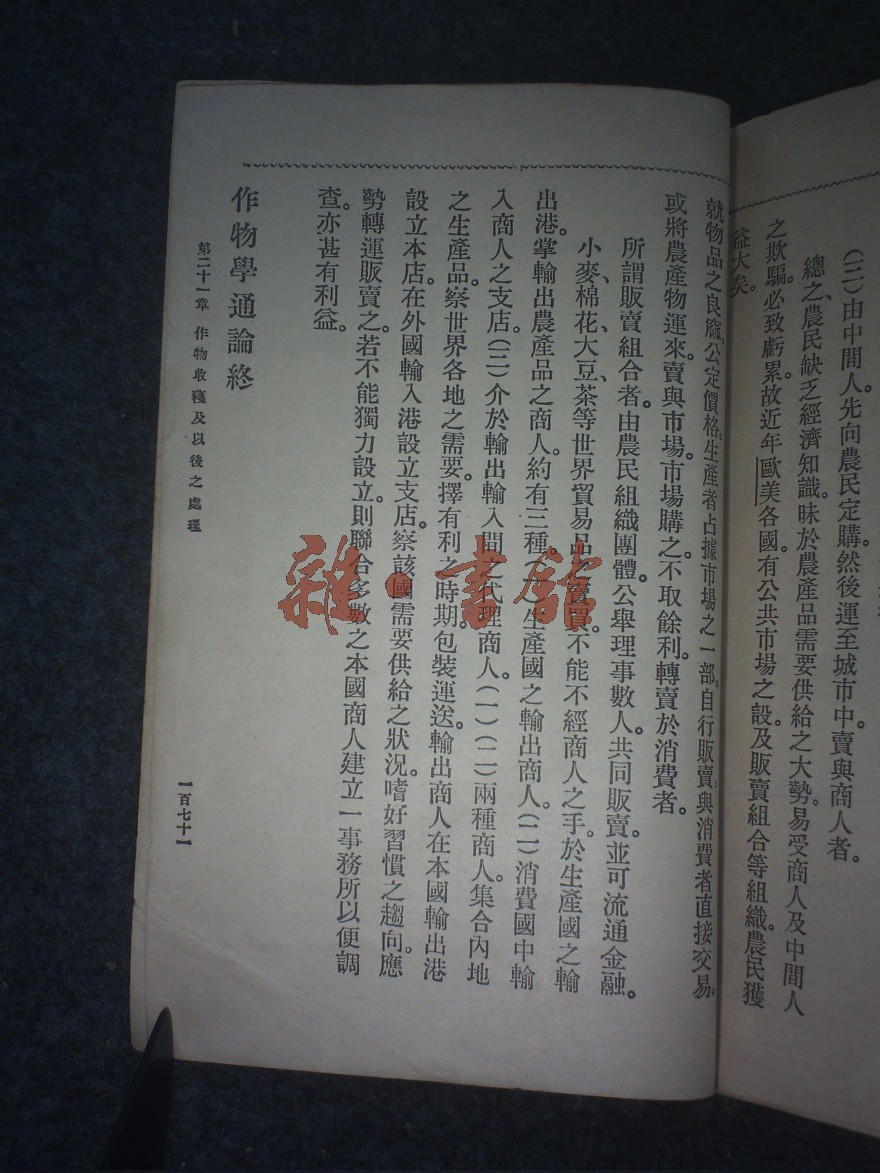 (三)由中間人先向農民定購。然後運至城市中。賣與商人者。
總之、農民缺乏經濟知識。昧於農產品需要供給之大勢。易受商人及中間人
之欺騙。必致虧累。故近年歐美各國有公共市場之設。及販賣組合等組織。農民獲
益大矣。
就物品之良窳。公定價格。生產者占據市場之一部。自行販賣。與消費者直接交易。
或將農產物運來。賣與市場。市場購之。不取餘利。轉賣於消費者。
所謂販賣組合者。由農民組織團體。公舉理事數人。共同販賣。並可流通金融。
小麥、棉花、大豆、茶等世界貿易品之賣買。不能不經商人之手。於生產國之輸
出港。掌輸出農產品之商人。約有三種。(一)生產國之輸出商人。(二)消費國中輸
入商人之支店。(三)介於輸出輸入間之代理商人。(一)(二)兩種商人。集合內地
之生產品。察世界各地之需要。擇有利之時期。包裝運送。輸出商人在本國輸出港
設立本店。在外國輸入港設立支店。察該國需要供給之狀況。嗜好習慣之趨向。應
勢轉運販賣之。若不能獨力設立。則聯合多數之本國商人建立一事務所以便調
查。亦甚有利益。
作物學通論終
第二十一章 作物收穫及以後之處理
一百七十一
雜·書館